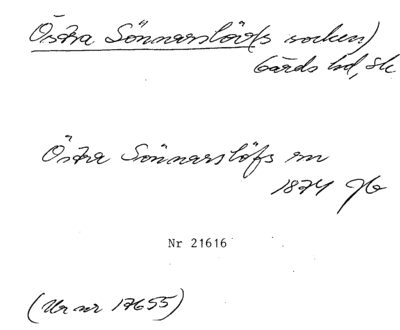 Östra Sönnarslövs socken)
Gärds hd, Sk
Östra Sönnarslöfs sn
1874
Nr 21616
(Ur nr 17655)